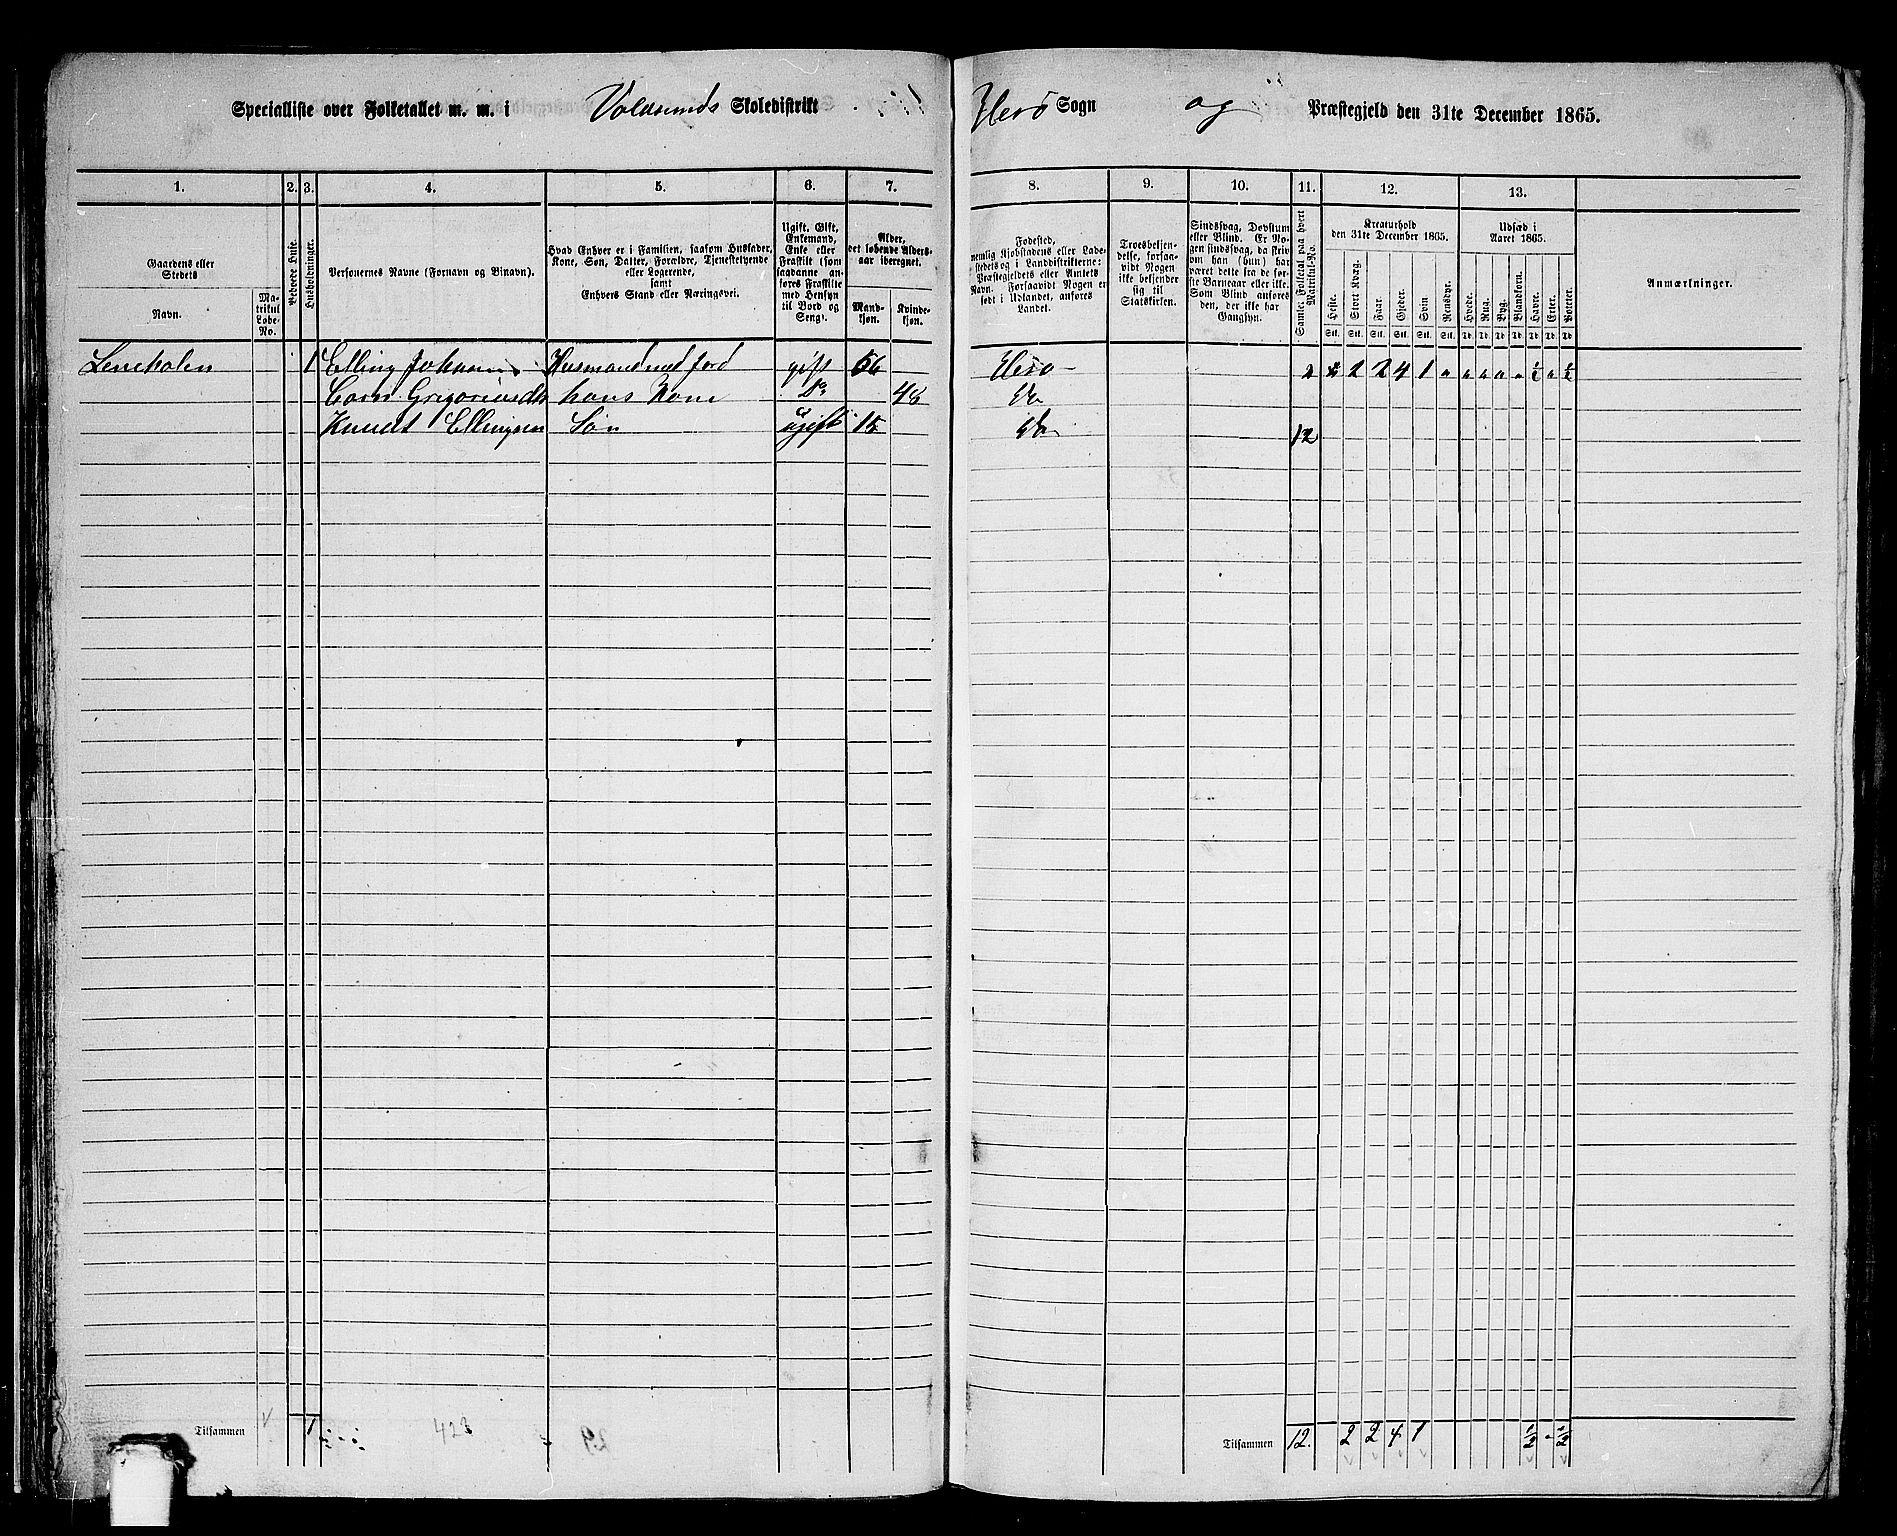 Specialliste over Folketallet m. m. i Voldsunds Skoledistrikt
Herø Sogn og Præstegjeld den 31te December 1865.
1. 2. 3. 4. 5. 6. 7.
8. 9. 10. 11. 12. 13.
Gaardens eller
Stedets
Navn.
Ma-
trikul
Løbe-
No.
Beboede Huse.
Husholdninger.
Personernes Navne (Fornavn og Binavn).
Hvad Enhver er i Familien, saasom Husfader,
Kone, Søn, Datter, Forældre, Tjenestetyende
eller Logerende,
samt
Enhvers Stand eller Næringsvei.
Ugift, Gift,
Enkemand,
Enke eller
Fraskilt (som
saadanne an-
føres Fraskilte
med Hensyn
til Bord og
Seng).
Alder,
det løbende Alders-
aar iberegnet.
Mand-
kjøn.
Kvinde-
kjøn.
Fødested,
nemlig Kjøbstadens eller Lade-
stedets og i Landdistrikterne:
Præstegjeldets eller Amtets
Navn. Forsaavidt Nogen er
født i Udlandet, anføres
Landet.
Troesbekjen-
delse, forsaa-
vidt Nogen
ikke bekjender
sig til
Statskirken.
Sindssvag, Døvstum
eller Blind. Er No-
gen sindssvag, da skriv
om han (hun) har
været dette fra de før-
ste Barneaar eller ikke.
Som Blind anføres
den, der ikke har
Gangsyn.
Samlet Folketal paa hvert
Matrikul-No.
Kreaturhold
den 31te December 1865.
Heste. Stort Kvæg. Faar. Gjeder. Svin. Rensdyr.
Stk. Stk. Stk. Stk. Stk. Stk.
Udsæd i
Aaret 1865.
Hvede. Rug. Byg. Blandkorn. Havre. Erter. Poteter.
Td Td Td Td Td Td Td
Anmærkninger.
1 Elling Johannes Husmand med jord gift 56 Herø 2 2 4 1 " " " " " ½ " ½
Gregoriusdtr hans Kone Do 48 Do
Knudt Ellingsen Søn ugift 15 Do 12
Tilsammen 1 423 29
Tilsammen 12. 2 2 4 1 ½ " ½